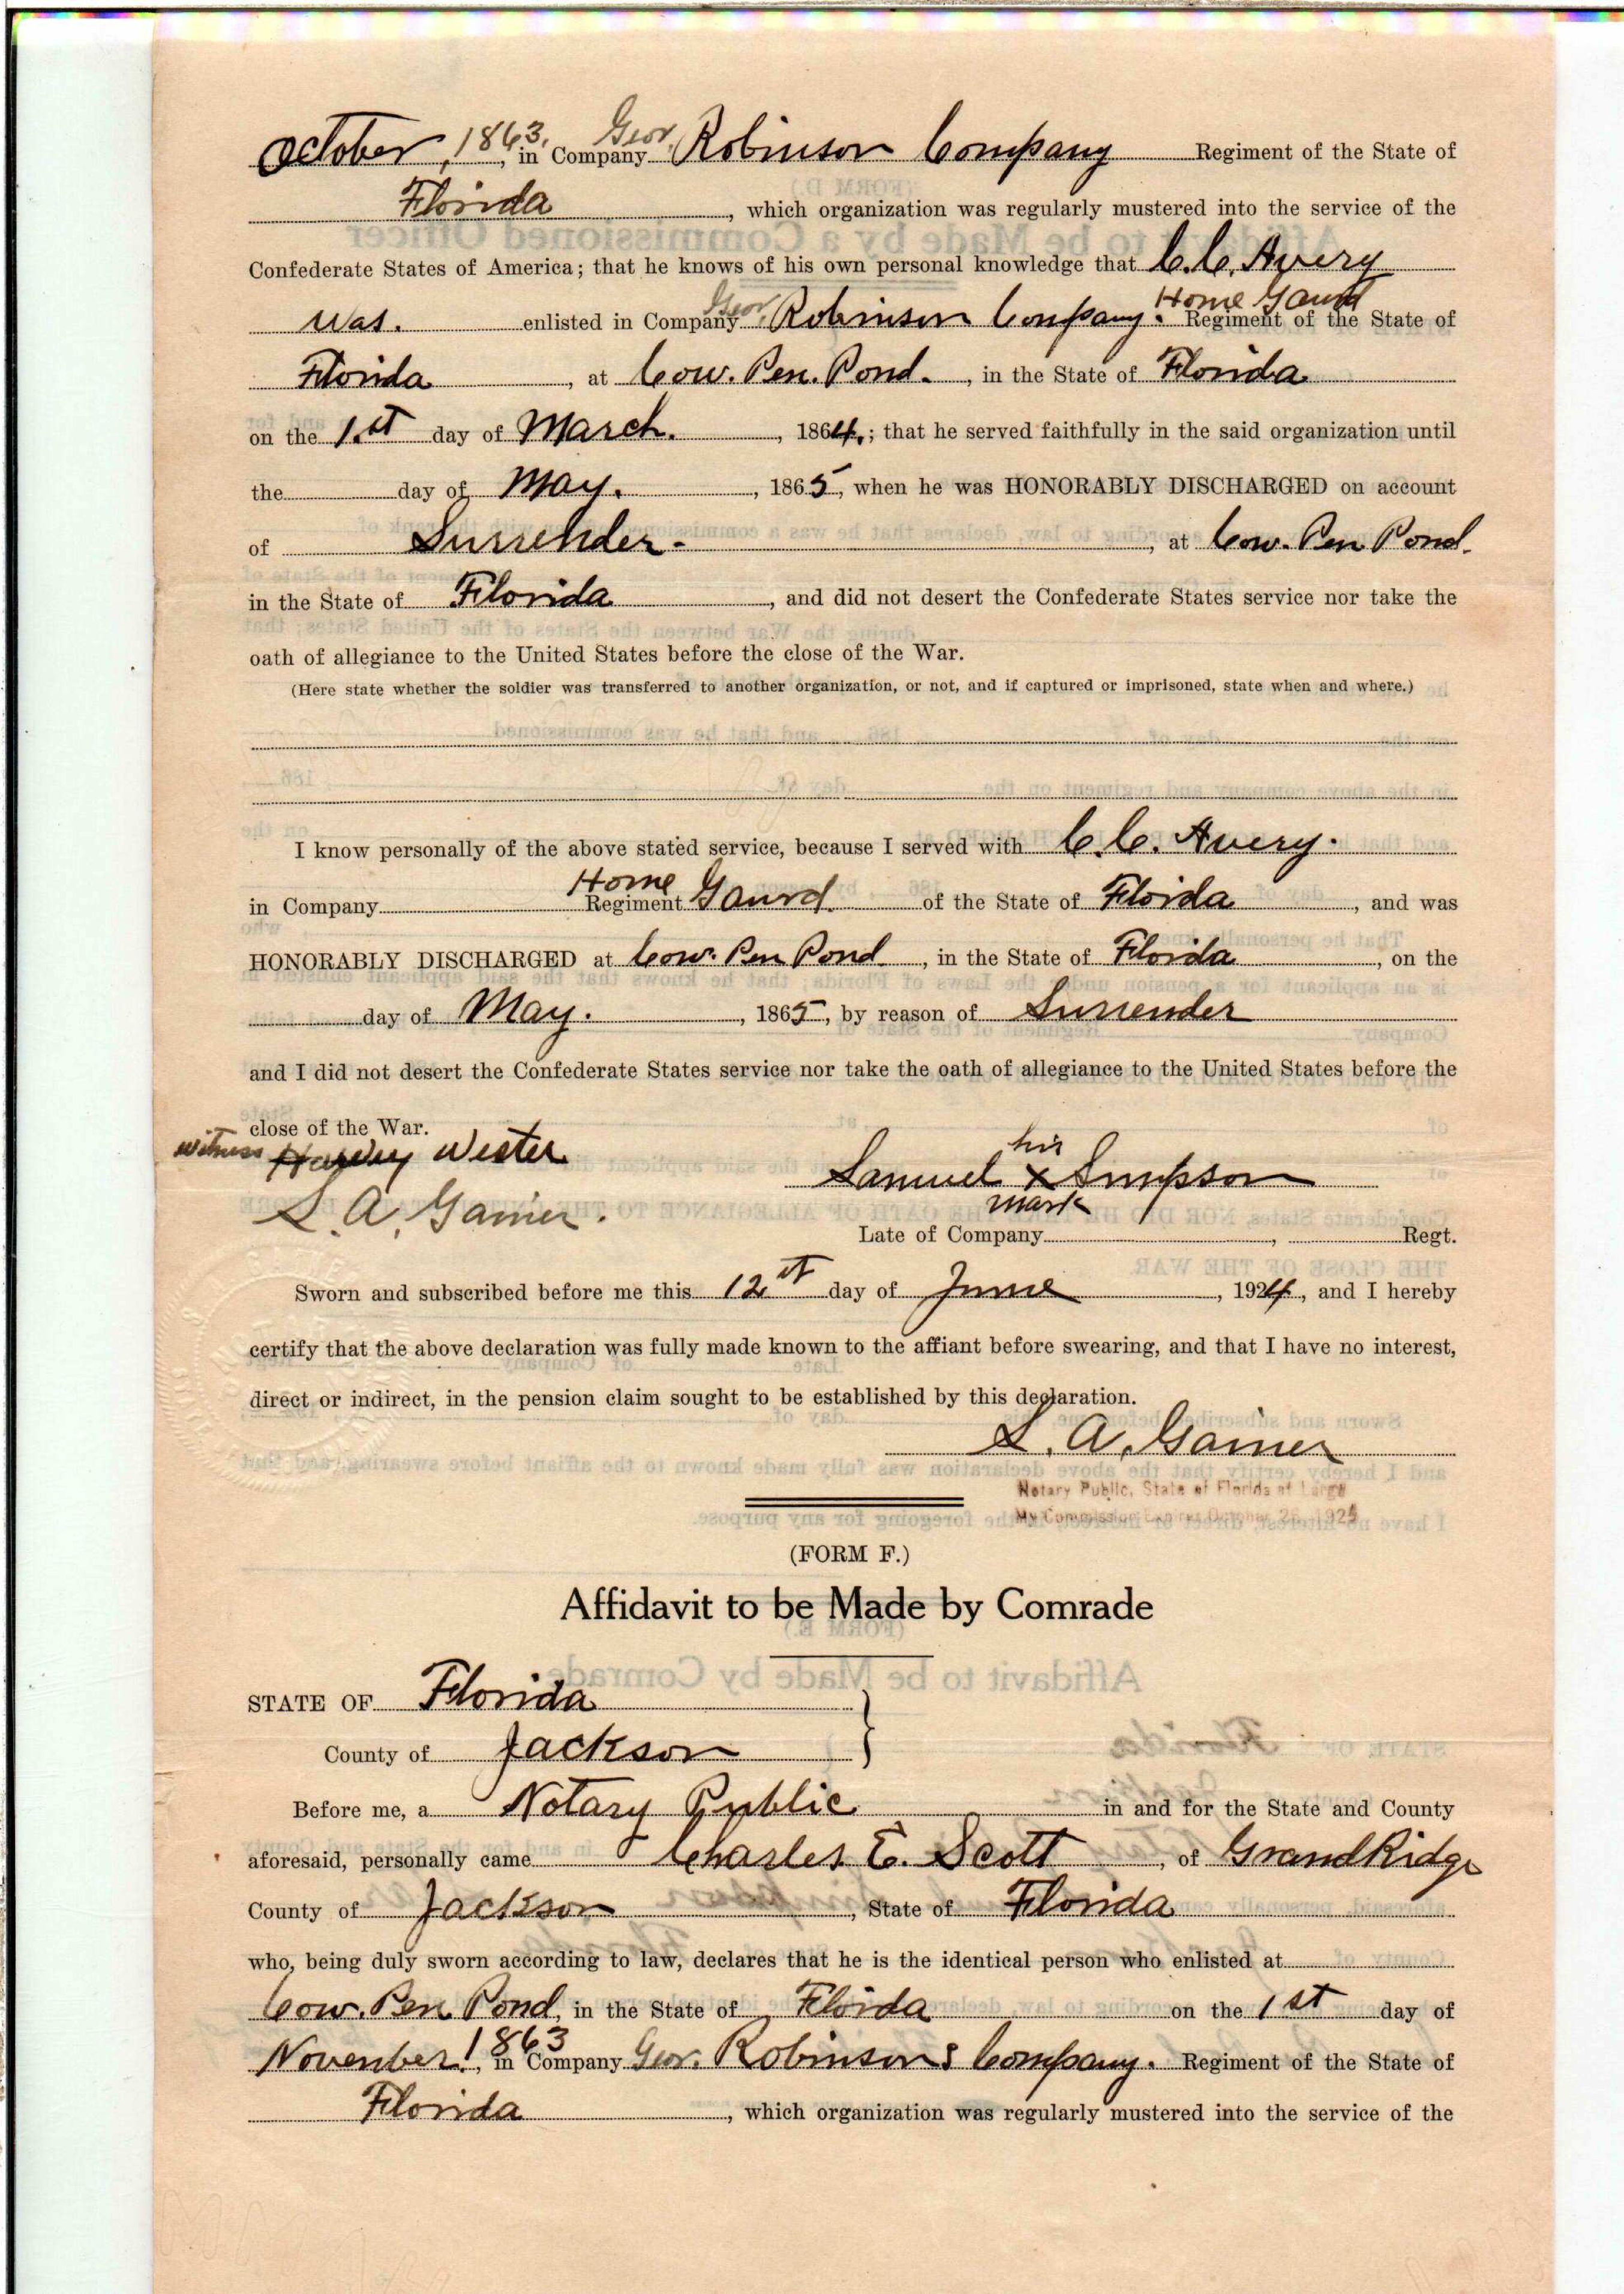 October, 1863, in Company Geo. Robinson Company Regiment of the State of
Florida, which organization was regularly mustered into the service of the
Confederate States of America; that he knows of his own personal knowledge that C.C. Avery
was. enlisted in Company Geo. Robinson Company. Home Gaurd Regiment of the State of
Florida, at Cow. Pen. Pond., in the State of Florida
on the 1.st day of March., 1864.; that he served faithfully in the said organization until
the day of May., 1865, when he was HONORABLY DISCHARGED on account
of Surrender-, at Cow. Pen Pond.
in the State of Florida, and did not desert the Confederate States service nor take the
oath of allegiance to the United States before the close of the War.
(Here state whether the soldier was transferred to another organization, or not, and if captured or imprisoned, state when and where.)
I know personally of the above stated service, because I served with C.C. Avery.
in Company Home Regiment Gaurd of the State of Florida, and was
HONORABLY DISCHARGED at Cow. Pen Pond, in the State of Florida, on the
day of May., 1865, by reason of Surrender
and I did not desert the Confederate States service nor take the oath of allegiance to the United States before the
close of the War.
witness Harvey Wester
his
Samuel X Simpson
mark
L. A. Gainer.
Late of Company, Regt.
Sworn and subscribed before me this 12st day of June, 1924, and I hereby
certify that the above declaration was fully made known to the affiant before swearing, and that I have no interest,
direct or indirect, in the pension claim sought to be established by this declaration.
L. A. Gainer
Notary Public, State of Florida at Large
My Commission Expires October 26, 1925
(FORM F.)
Affidavit to be Made by Comrade
STATE OF Florida
County of Jackson
Before me, a Notary Public in and for the State and County
aforesaid, personally came Charles E. Scott, of Grand Ridge
County of Jackson, State of Florida
who, being duly sworn according to law, declares that he is the identical person who enlisted at
Cow. Pen Pond, in the State of Florida on the 1st day of
November, 1863 in Company Geo. Robinsons Company. Regiment of the State of
Florida, which organization was regularly mustered into the service of the